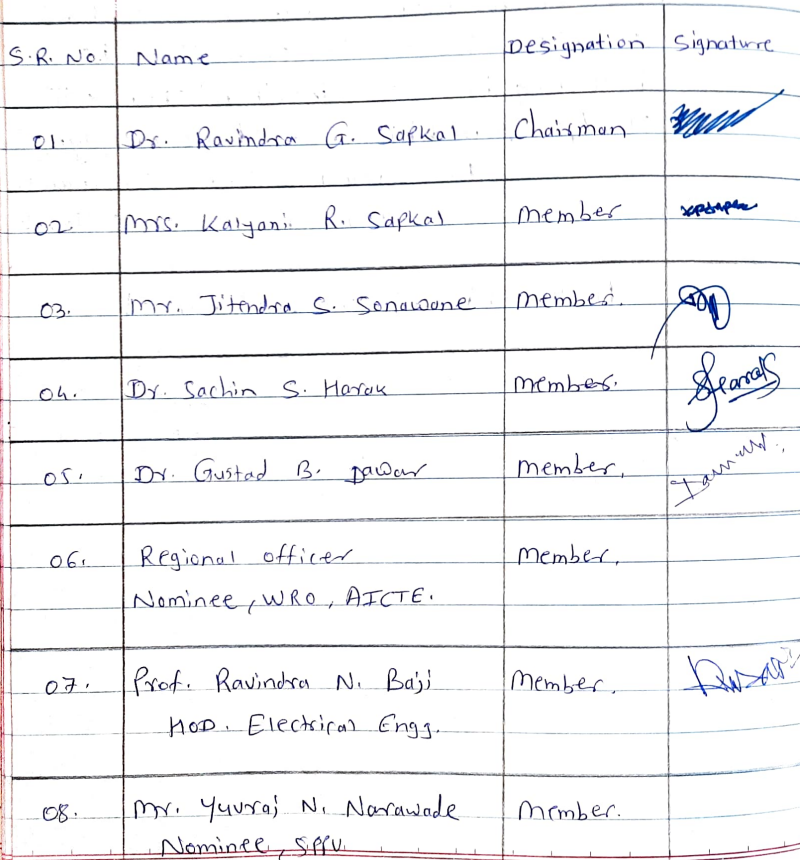 S.R. No. Name Designation Signature
01. Dr. Ravindra G. Sapkal. Chairman
02 Mrs. Kalyani R. Sapkal member
03. Mr. Jitendra S. Sonawane member.
04. Dr. Sachin S. Harak member.
05. Dr. Gustad B. Dawar member.
06. Regional officer member.
Nominee, WRO, AICTE.
07. Prof. Ravindra N. Baji member.
HOD. Electrical Engg.
08. Mr. Yuvraj N. Narawade member.
Nominee, SPPU